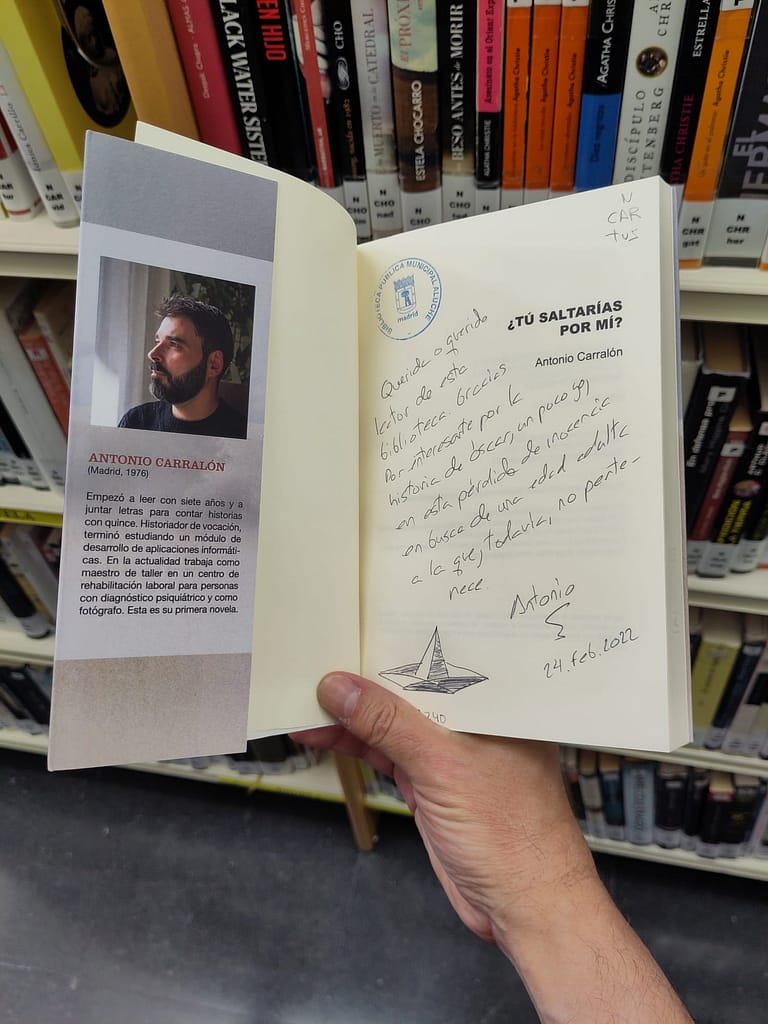 BLACK WATER SISTER
EN HIJO
CHO
MUERTO EN LA CATEDRAL
ESTELA CHOCARRO
BESO ANTES DE MORIR
AGATHA CHRISTIE
Asesinato en el Orient Exp
Agatha Christie
Agatha Christie
Agatha Christie
AGATHA CHRIS
Diez negritos
DISCÍPULO
TENBERG
ESTRELLA
AGATHA CHRISTIE
Agatha Christie
N
CAR
N
CHO
N
CHO
nad
N
CHO
N
CHR
N
CHR
N
CHR
gat
N
CHR
her
ANTONIO CARRALÓN
(Madrid, 1976)
Empezó a leer con siete años y a
juntar letras para contar historias
con quince. Historiador de vocación,
terminó estudiando un módulo de
desarrollo de aplicaciones informáti-
cas. En la actualidad trabaja como
maestro de taller en un centro de
rehabilitación laboral para personas
con diagnóstico psiquiátrico y como
fotógrafo. Esta es su primera novela.
N
CAR
tus
BIBLIOTECA PÚBLICA MUNICIPAL ALUCHE
madrid
¿TÚ SALTARÍAS
POR MÍ?
Antonio Carralón
Querida o querido
lector de esta
biblioteca. Gracias
por interesarte por la
historia de Óscar, un poco yo,
en esta pérdida de inocencia
en busca de una edad adulta
a la que, todavía, no perte-
nece.
Antonio
24.feb.2022
240